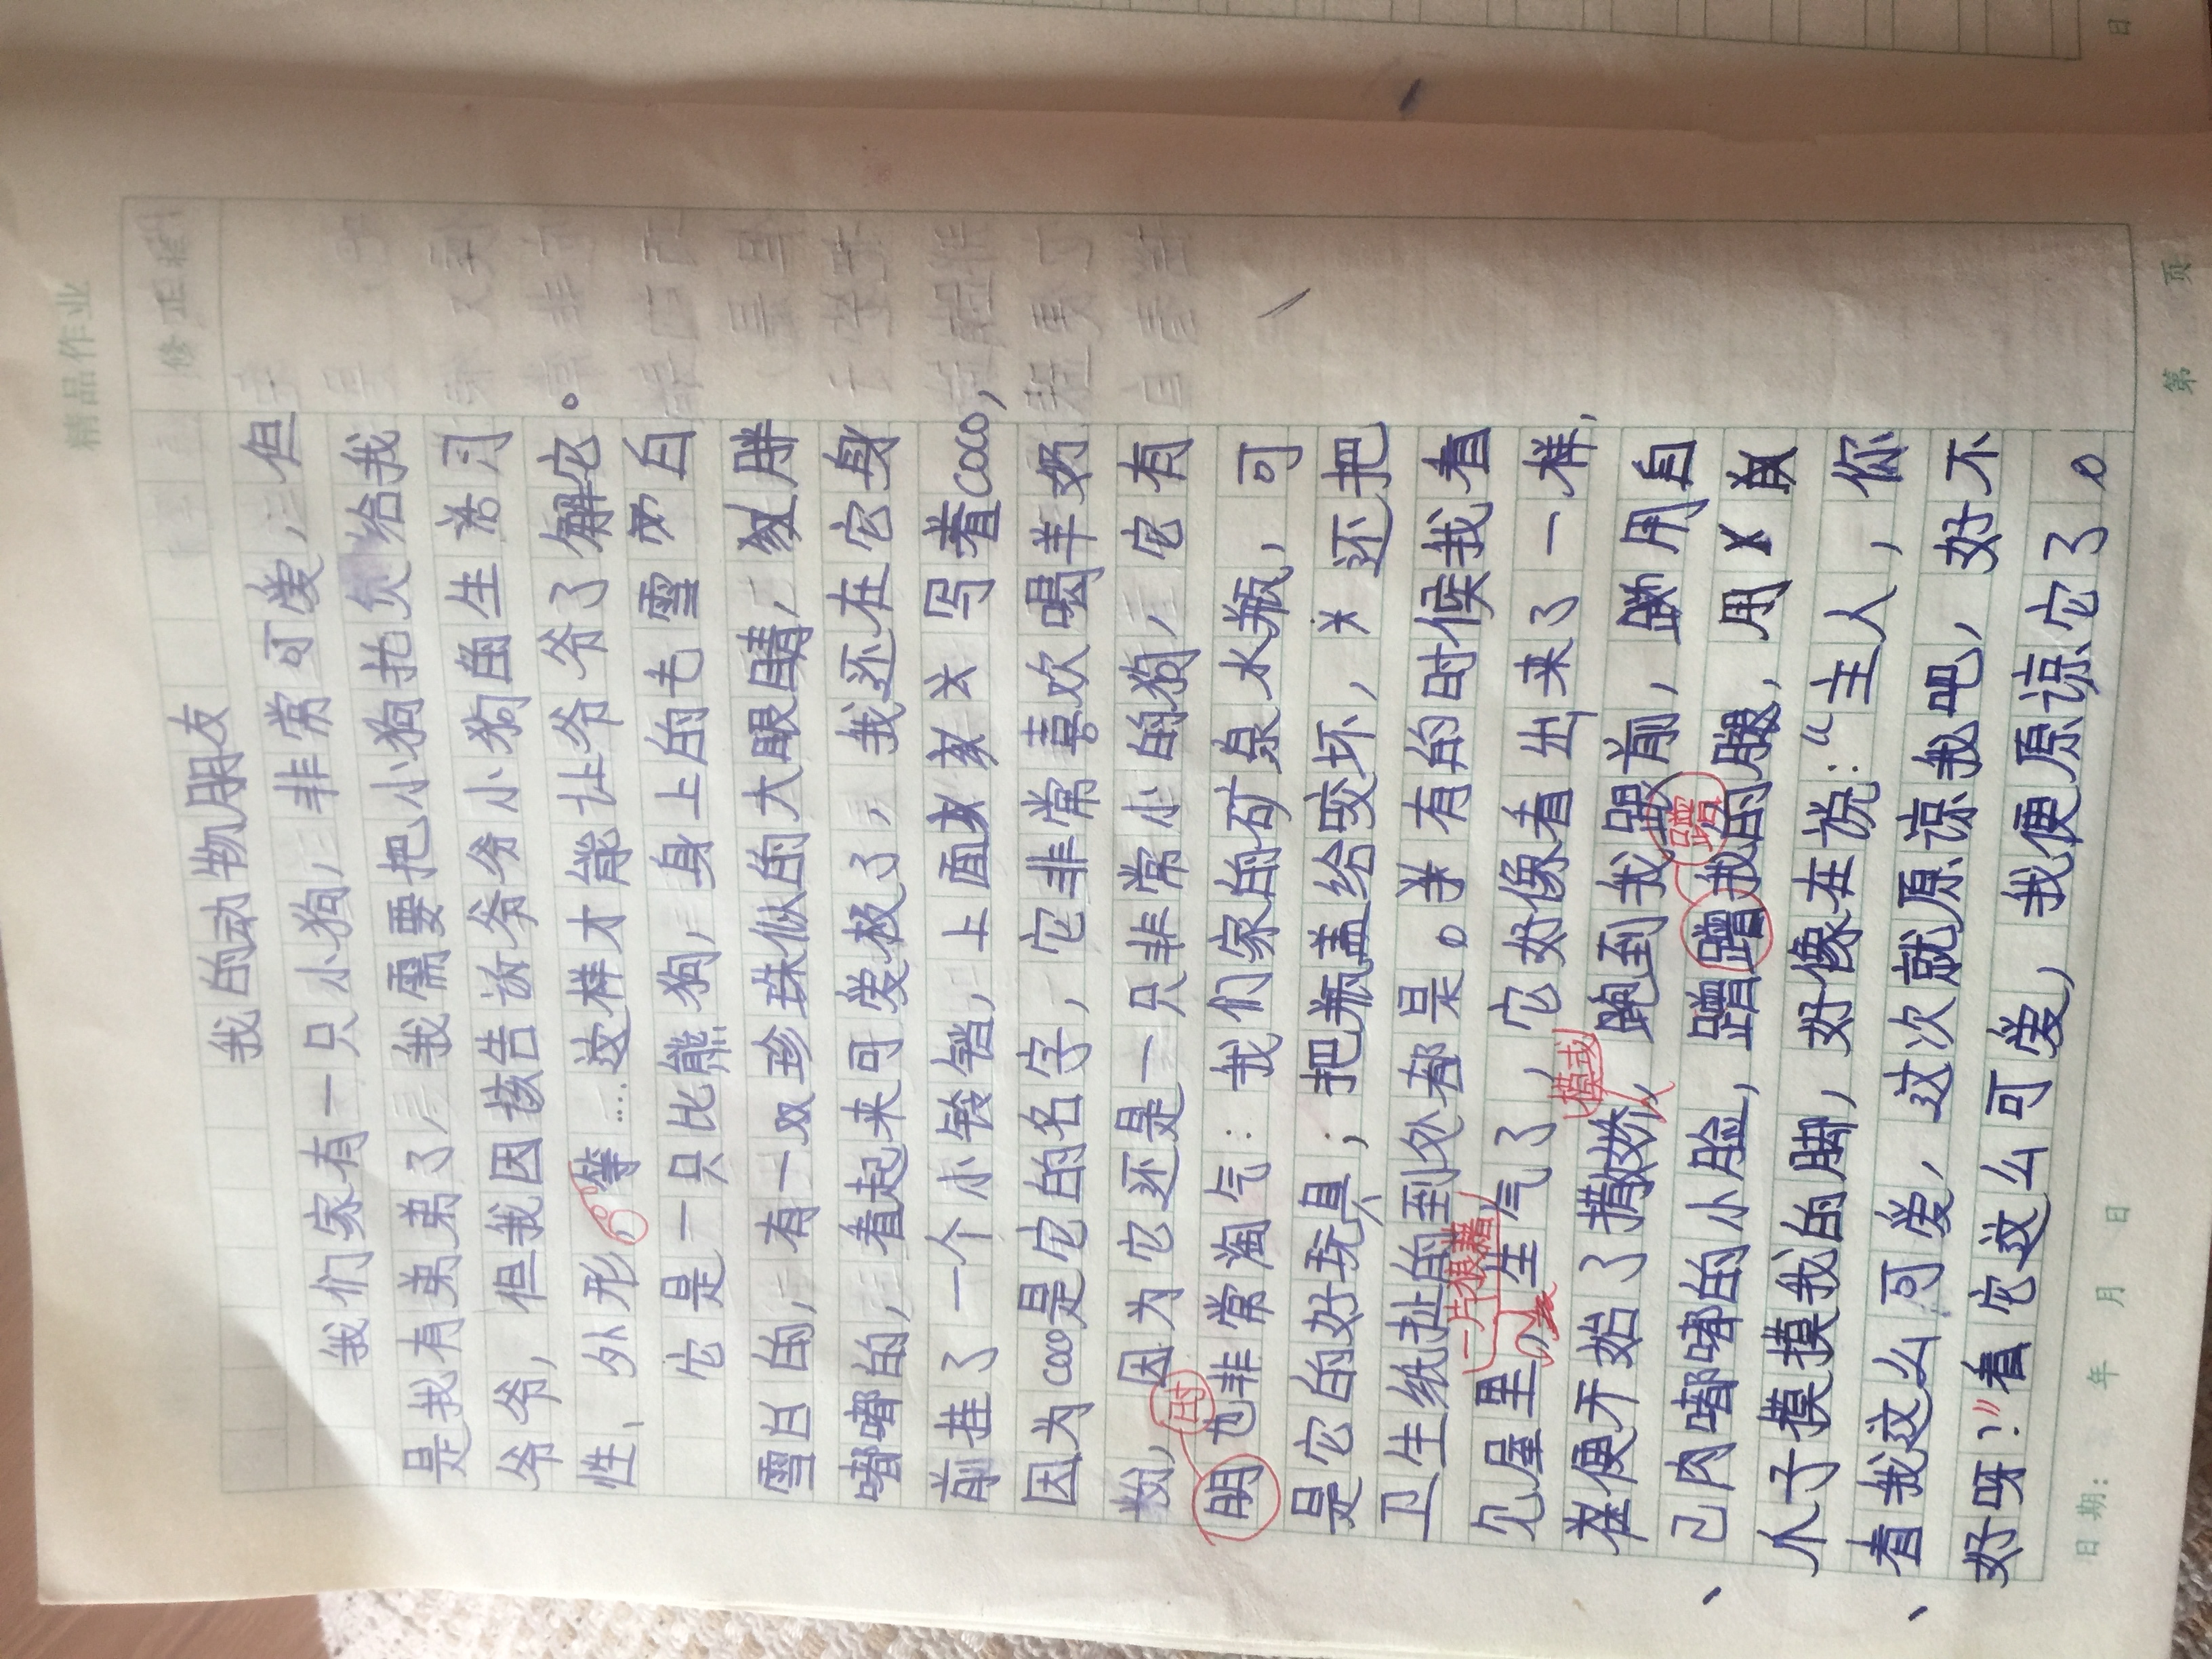 精品作业
修正栏
我的动物朋友
我们家有一只小狗,非常可爱,但
是我有弟弟了,我需要把小狗托负给我
爷爷,但我因该告诉爷爷小狗的生活习
性、外形等……这样才能让爷爷了解它。
它是一只比熊狗,身上的毛雪白
雪白的,有一双珍珠似的大眼睛,胖
嘟嘟的,看起来可爱极了,我还在它身
前挂了一个小铃铛,上面写着coco,
因为coco是它的名字,它非常喜欢喝羊奶
粉,因为它还是一只非常小的狗,它有
时
朋也非常淘气:我们家的矿泉水瓶,可
是它的好玩具,把瓶盖给咬坏,还把
卫生纸扯的到处都是。有的时候我看
一片狼藉
见屋里生气了,它好像看出来了一样,
模或
便开始了撒娇,跑到我跟前,用自
蹭
己肉嘟嘟的小脸,蹭蹭我的腿,用
爪子摸摸我的脚,好像在说:“主人,你
看我这么可爱,这次就原谅我吧,好不
好呀!”看它这么可爱,我便原谅它了。
日期: 年 月 日
第 页
日